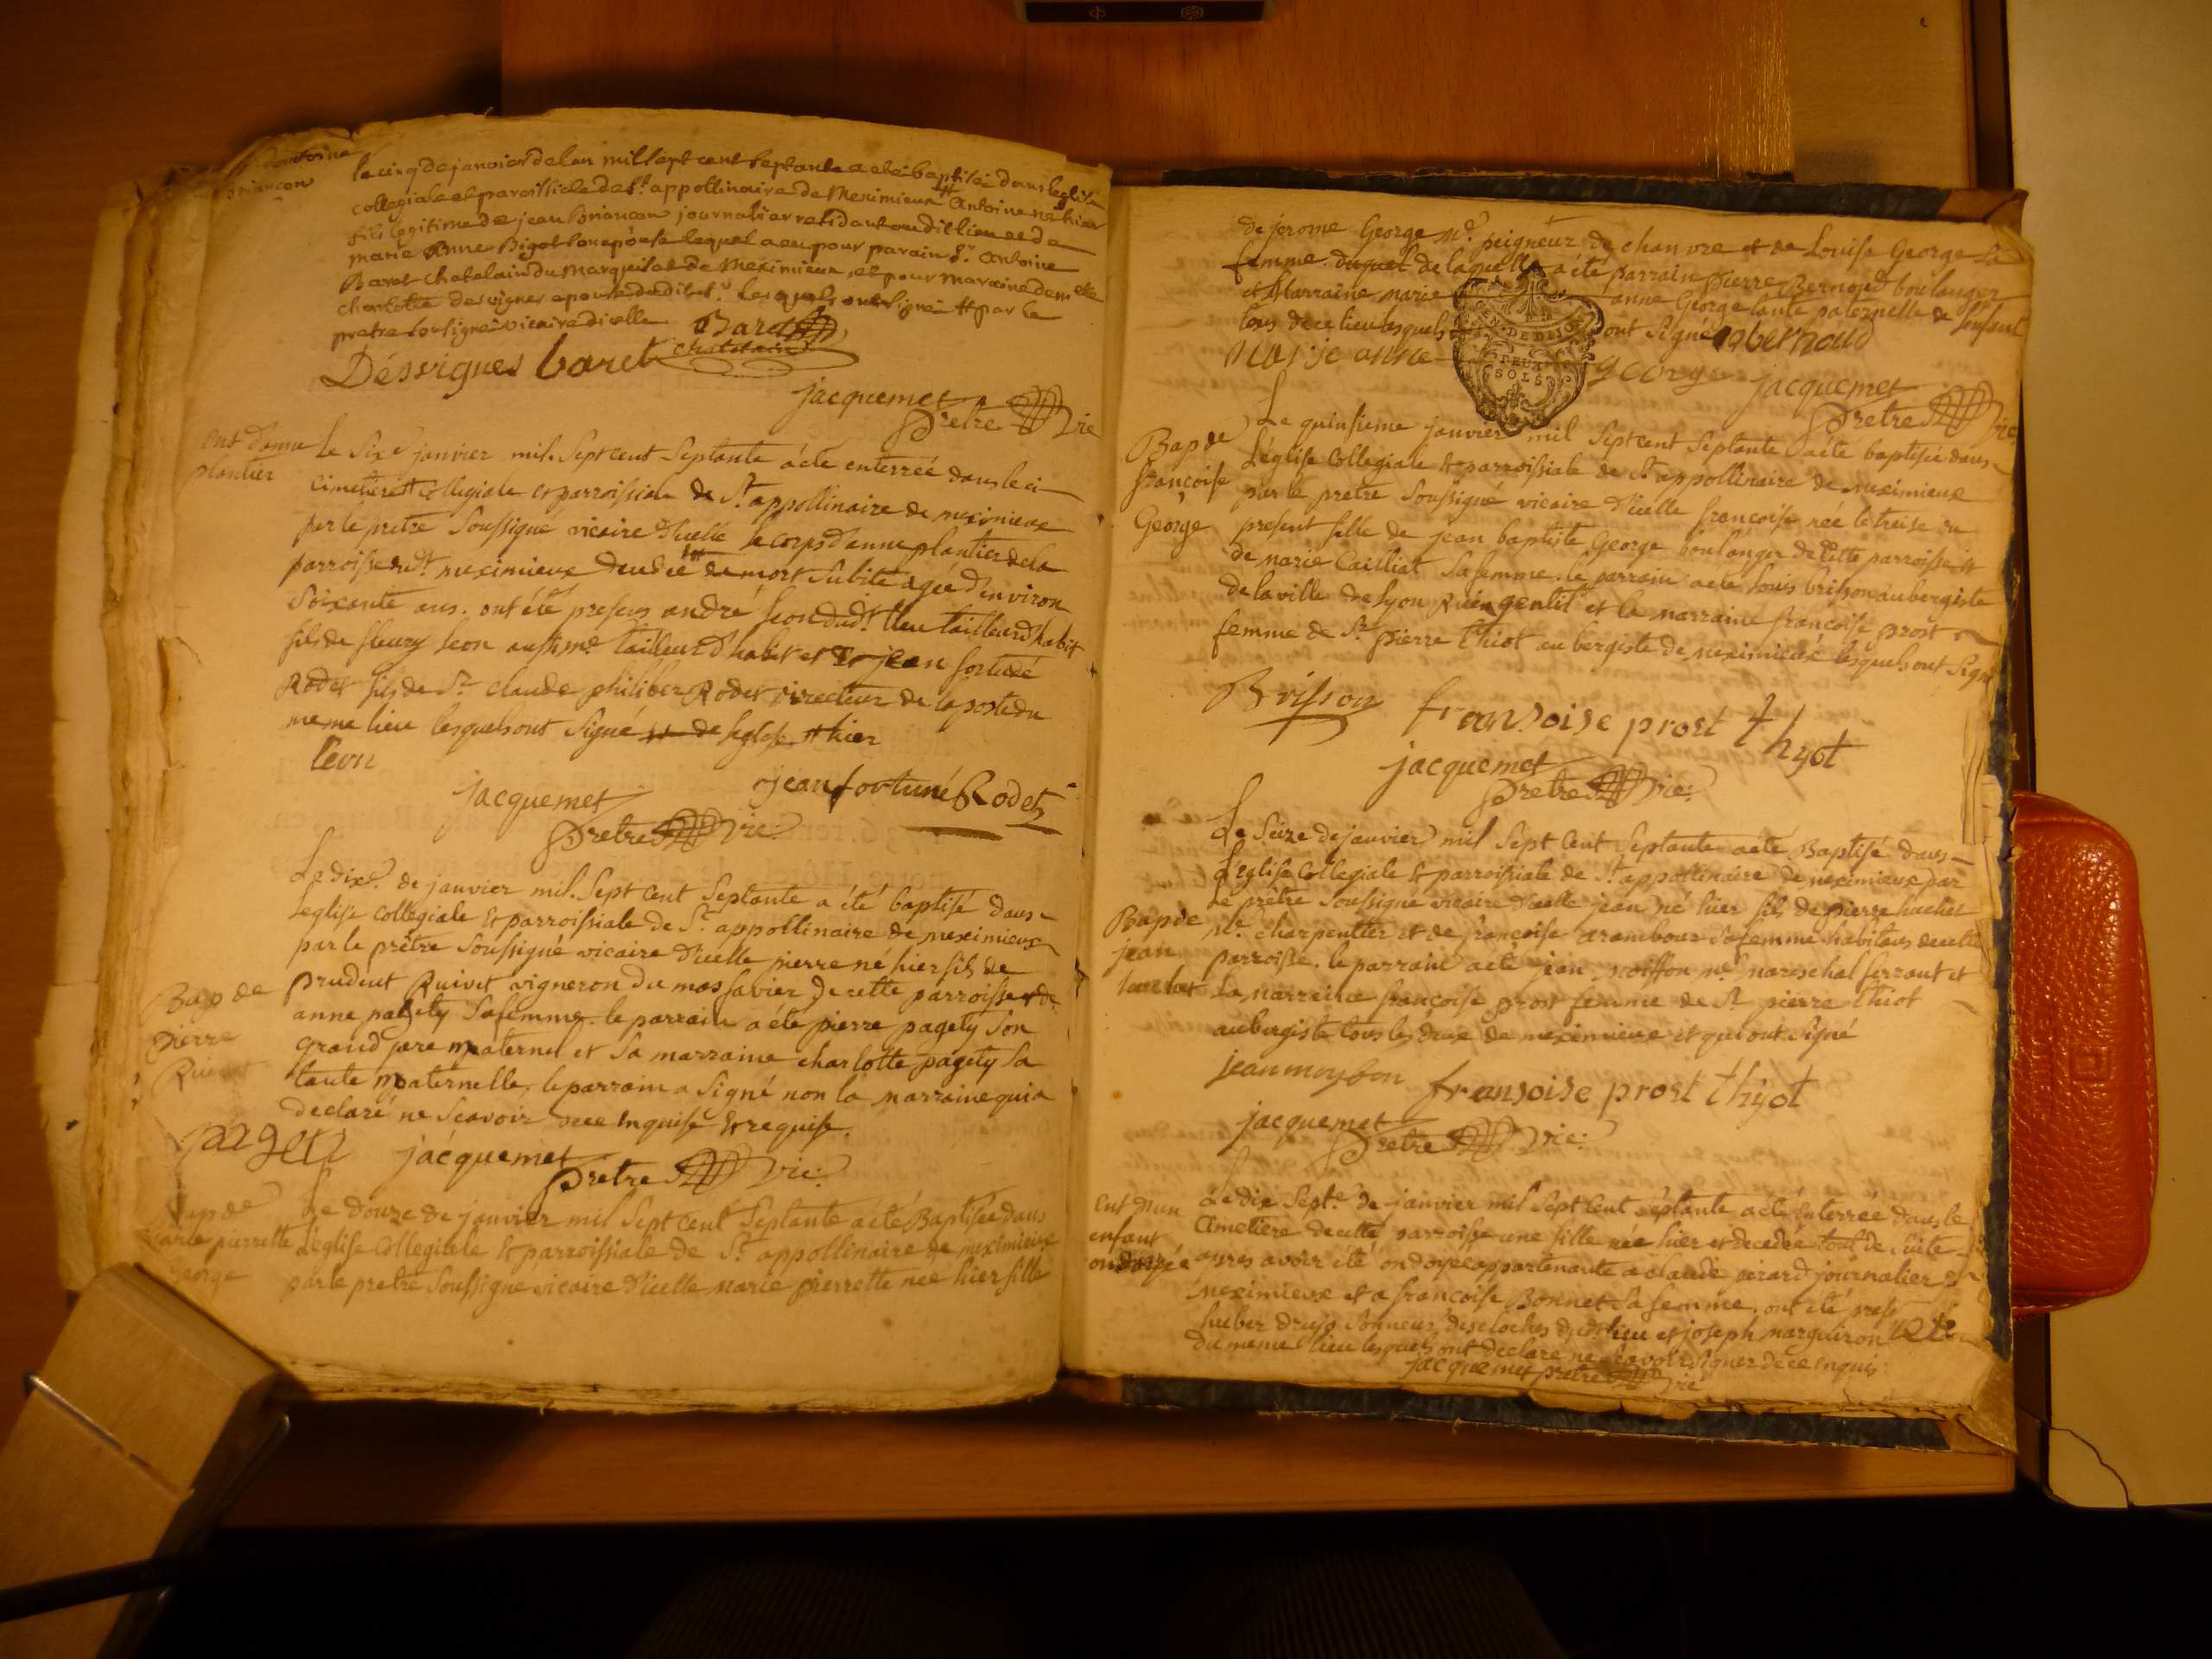 antoine
briancon
le cinq de janvier de l an mil sept cent septante a eté baptisé dans leglise
collegiale et paroissiale de st appollinaire de Meximieux # Antoine né hier
fils legitime de jean briancon journalier residant audit lieu et de
marie Anne Bigot son epouse lequel a eu pour parain Sr. Antoine
Baret chatelain du marquisat de Meximieux, et pour maraine demelle
charlotte desvignes epouse dudit sr. lesquels ont signé # par le
pretre soussigné vicaire dicelle Baret
Désvignes baret chatelain
jacquemet
pretre vic
ent d'anne
plantier
Le Sixe janvier mil. Sept cent Septante a éte enterreé dans le ci
cimetiere # collegiale et parroissiale de St. appollinaire de meximieux
par le pretre Soussigné vicaire d'icelle le corps d'anne plantier de la
parroisse dudt. meximieux decedée de mort Subite agée d'environ
Soixante ans. ont été presens andré leon dudt. lieu tailleur d'habit
fils de fleury leon aussi me. tailleur d'habit et jean fortuné
Rodet fils de Sr. claude philiber Rodet directeur de la poste du
meme lieu lesquels ont Signé # de leglise # hier
leon
jean fortuné Rodet
jacquemet
pretre vic.
Le dixe. de janvier mil. Sept cent Septante a été baptisé dans
leglise collegiale et parroissiale de St. appollinaire de meximieux
par le prêtre Soussigné vicaire d'icelle pierre né hier fils de
Bap de
pierre
Ruivet
prudent Ruivet vigneron du mas favier de cette parroisse et de
anne pagety Sa femme. le parrain a éte pierre pagety Son
grand pere maternel et Sa marraine charlotte pagety Sa
tante maternelle, le parrain a Signé non la marraine qui a
declaré ne Scavoir de ce enquise et requise.
pagety jacquemet
pretre vic.
Bap de
marie pierrette
George
Le douze de janvier mil Sept cent Septante a été Baptisée dans
L'église Collegiale et parroissiale de St. appollinaire de meximieux
par le pretre Soussigné vicaire d'icelle marie pierrette née hier fille
de jerome George me. peigneur de chanvre et de Louise George Sa
femme. duquel de laquelle a été parrain pierre Bernoud boulanger
et Marraine marie anne George tante paternelle de l'enfant
tous de ce lieu lesquels ont Signé bernoud
marie anne george jacquemet
pretre vic
GEN. DE DIJON
DEUX
SOLS
Bap de
françoise
George
Le quinsieme janvier mil Sept cent Septante a éte baptisée dans
L'église Collegiale et parroissiale de St appollinaire de meximieux
par le pretre Soussigné vicaire d'icelle francoise née le treise du
present fille de jean baptiste George boulanger de cette parroisse et
de marie Cailliat Sa femme. le parrain a éte Louis brisson aubergiste
de la ville de Lyon gentil et la marraine françoise prost
femme de Sr. pierre thiot aubergiste de meximieux lesquels ont Signé
Brisson fransoise prost thyot
jacquemet
pretre vic.
Le Seize de janvier mil Sept cent Septante a éte Baptisé dans
L'église Collegiale et parroissiale de St. appollinaire de meximieux par
Le prêtre Soussigné vicaire d'icelle jean né hier fils de pierre
Bap de
jean
me. charpentier et de françoise arambour Sa femme habitans de cette
parroisse. le parrain a éte jean moiffon me. mareschal ferrant et
La marraine françoise prost femme de Sr pierre thiot
aubergiste tous les deux de meximieux et qui ont Signé
jean moyfon fransoise prost thyot
jacquemet
pretre vic.
ent d'un
enfant
ondoyée
Le dix Septe. de janvier mil Sept cent Septante a été enterrée dans le
cimetiere de cette parroisse une fille née hier et decedée tout de Suite
apres avoir été ondoyée appartenante a claude girard journalier
meximieux et a francoise Bonnet Sa femme, ont été pres
Sonneur des cloches dudt lieu et joseph marguiron
du meme lieu lesquels ont declaré ne Scavoir Signer de ce enquis
jacquemet pretre vic